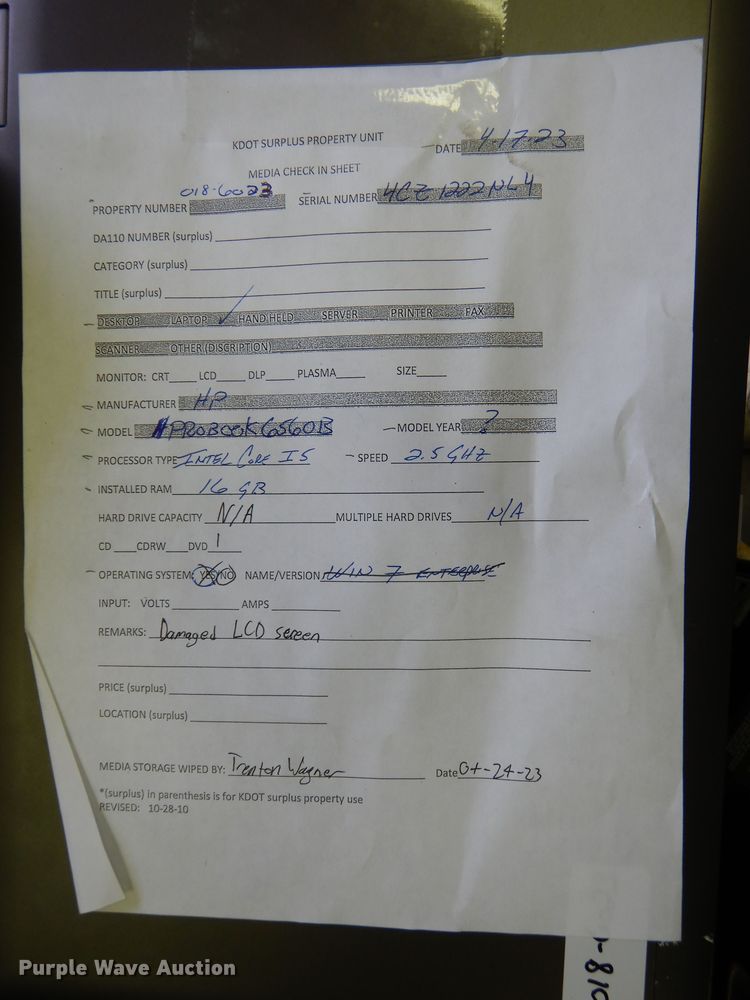 KDOT SURPLUS PROPERTY UNIT
DATE 4-17-23
MEDIA CHECK IN SHEET
PROPERTY NUMBER 018-6023 SERIAL NUMBER 4CZ1222NL4
DA110 NUMBER (surplus)
CATEGORY (surplus)
TITLE (surplus)
DESKTOP LAPTOP ✓ HAND HELD SERVER PRINTER FAX
SCANNER OTHER (DISCRIPTION)
MONITOR: CRT____ LCD____ DLP____ PLASMA____ SIZE____
MANUFACTURER HP
MODEL PROBOOK 6560B MODEL YEAR ?
PROCESSOR TYPE INTEL CORE I5 SPEED 2.5 GHZ
INSTALLED RAM 16 GB
HARD DRIVE CAPACITY N/A MULTIPLE HARD DRIVES N/A
CD ____CDRW____DVD 1
OPERATING SYSTEM: YES/NO NAME/VERSION WIN 7 ENTERPRISE
INPUT: VOLTS ____ AMPS ____
REMARKS: Damaged LCD screen
PRICE (surplus)
LOCATION (surplus)
MEDIA STORAGE WIPED BY: Trenton Wagner Date 04-24-23
*(surplus) in parenthesis is for KDOT surplus property use
REVISED: 10-28-10
Purple Wave Auction